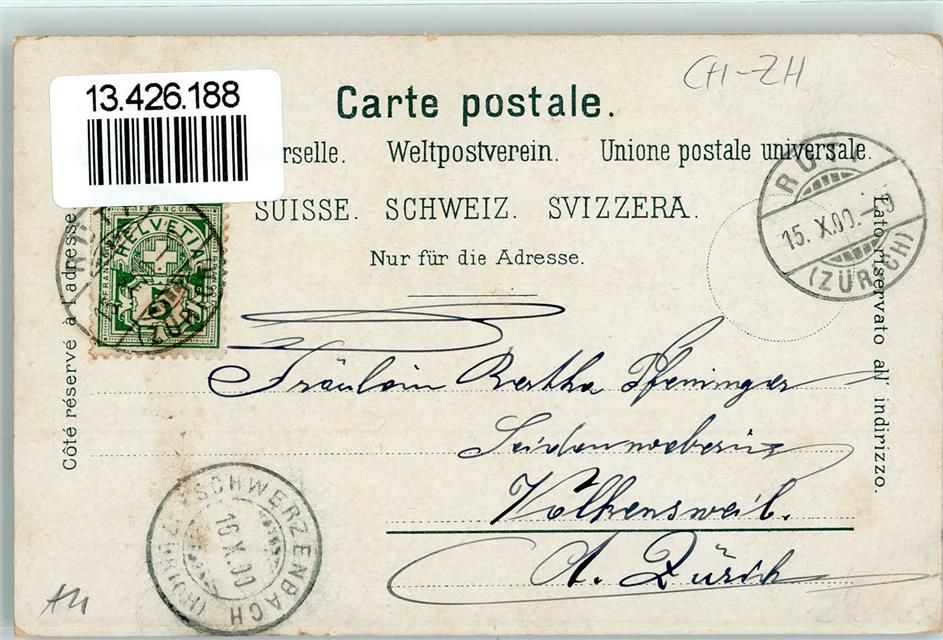 CH-ZH
13.426.188
Carte postale.
rselle. Weltpostverein. Unione postale universale.
SUISSE. SCHWEIZ. SVIZZERA.
Nur für die Adresse.
Côté réservé à l'adresse
Lato riservato all' indirizzo.
RÜTI
15.X.00.-8
(ZÜRICH)
FRANCO
HELVETIA
FRANCO
(ZÜRICH)
Fräulein Bertha Pfenninger
Seidenweberin
Volkensweil.
Ct. Zürich
SCHWERZENBACH
16.X.00
(ZÜRICH)